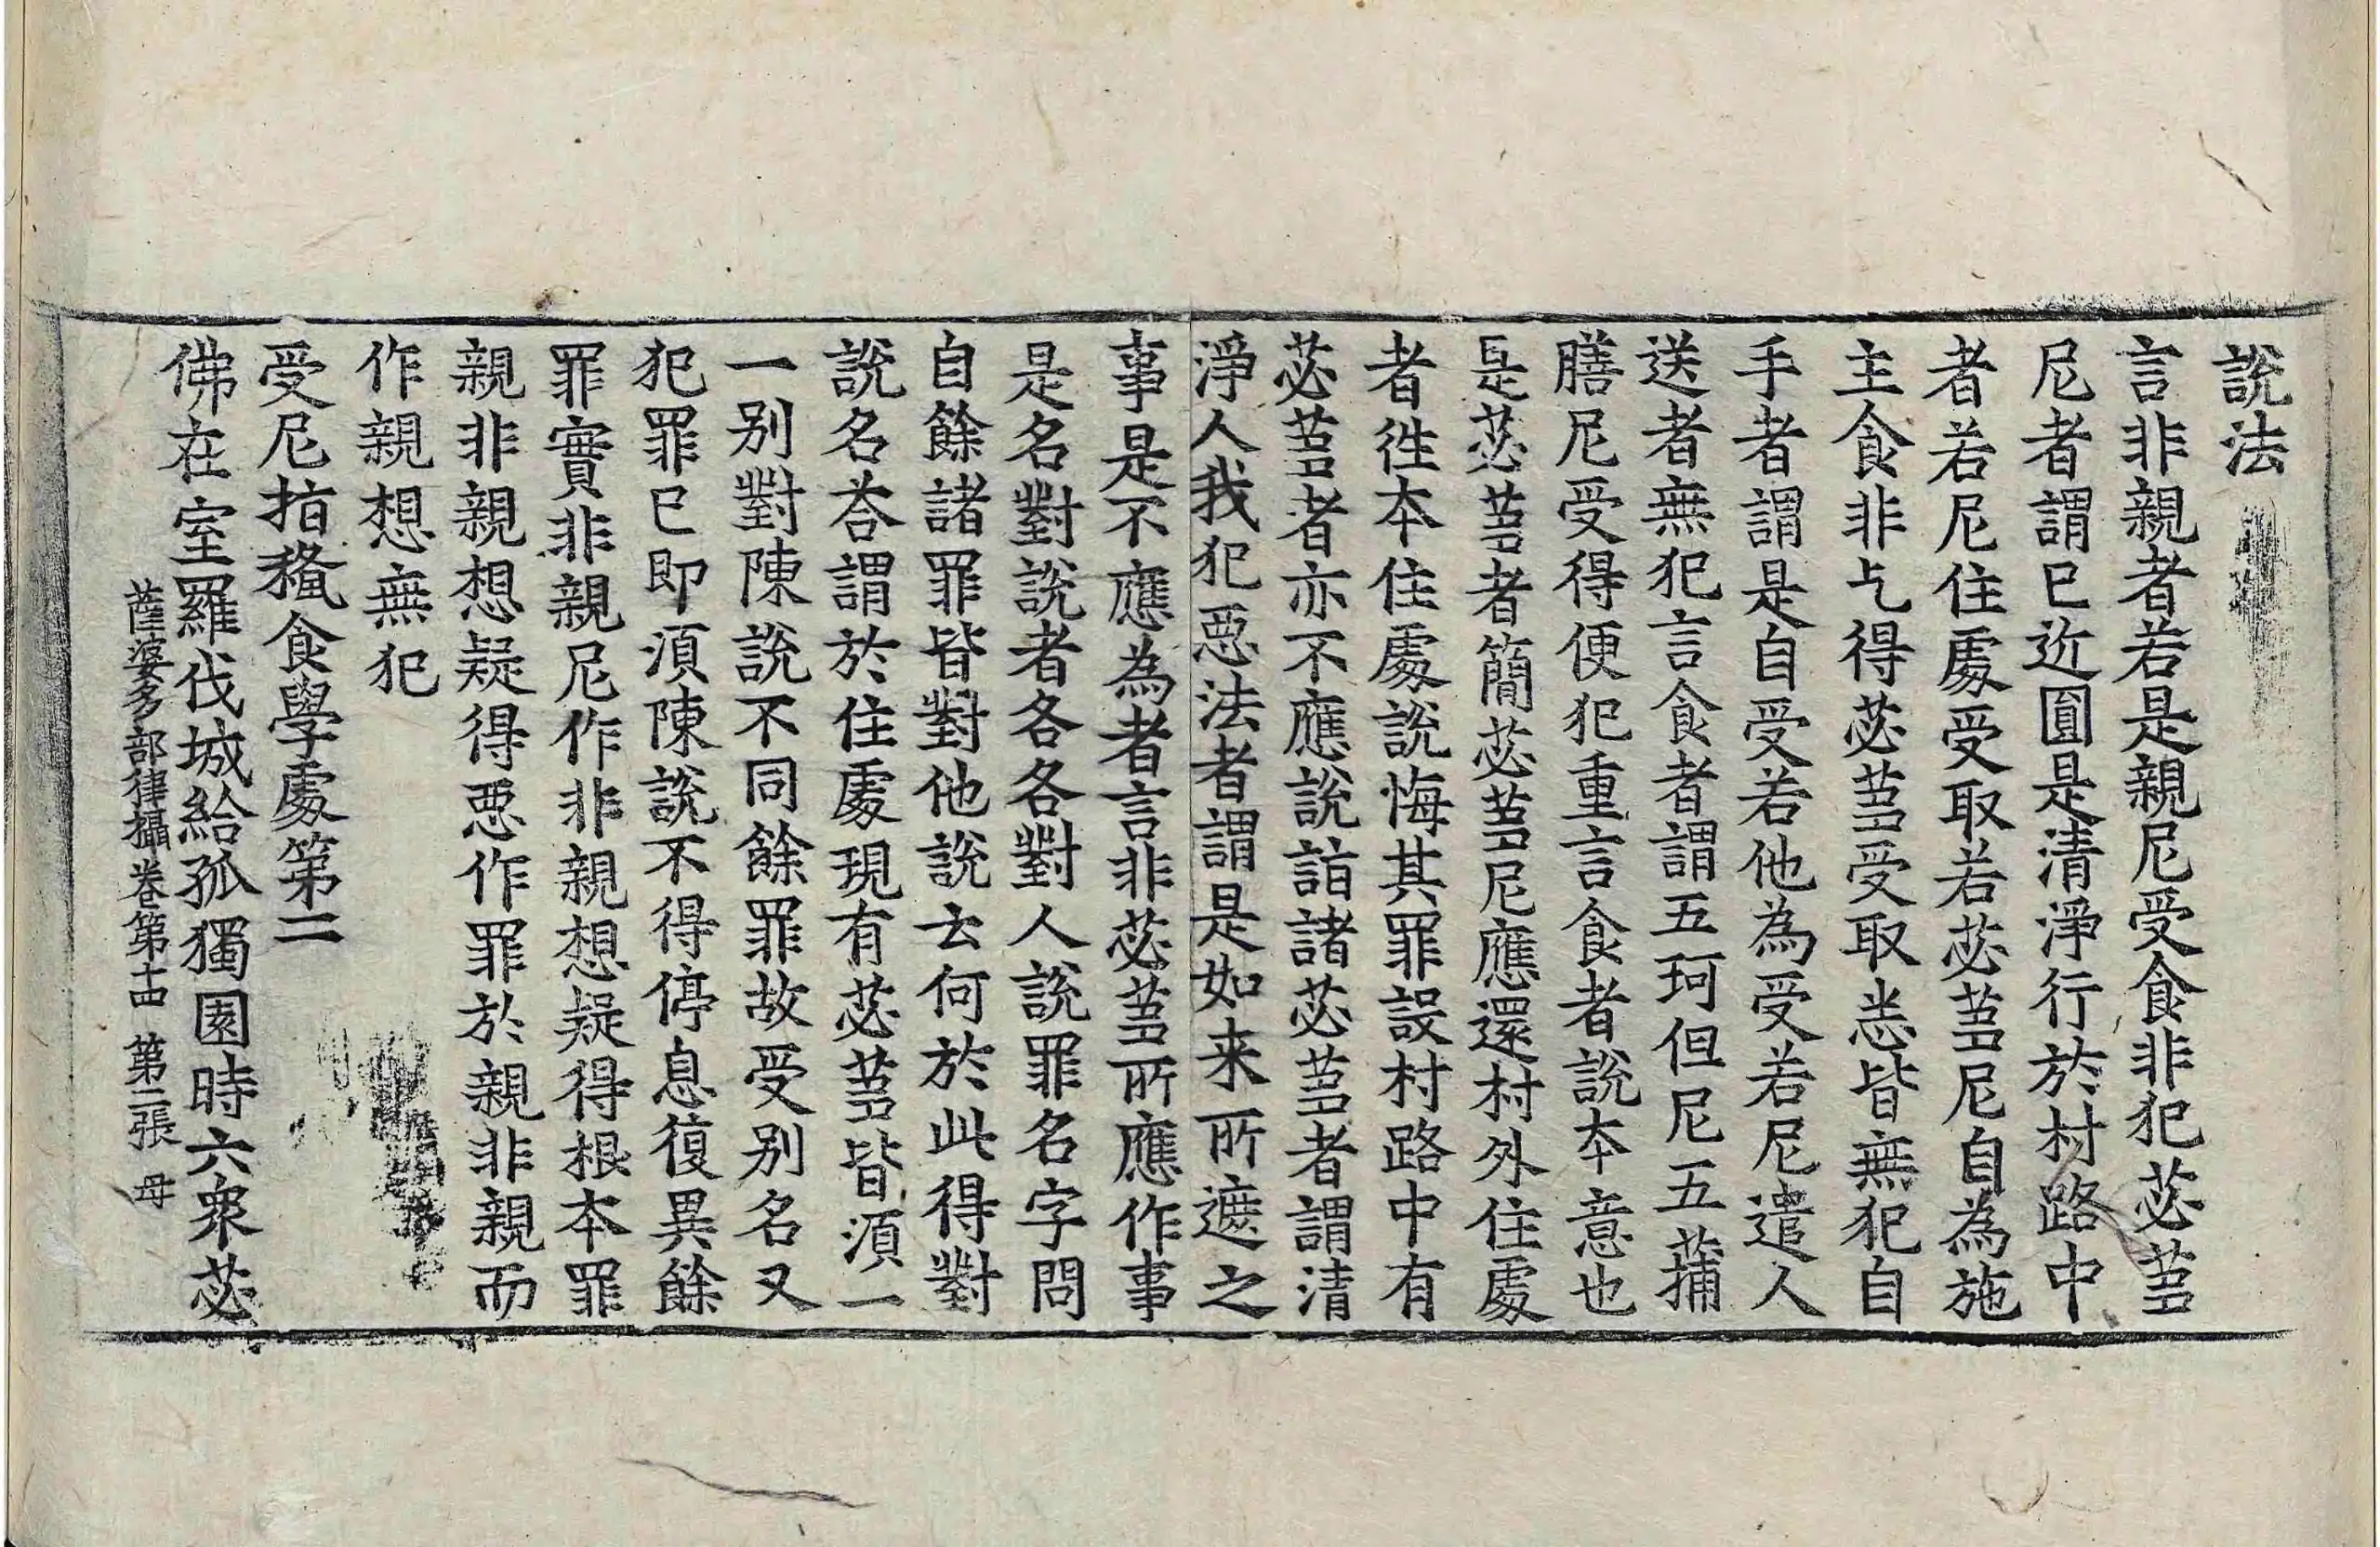 說法
言非親者若是親尼受食非犯苾蒭
尼者謂已近圓是清淨行於村路中
者若尼住處受取若苾蒭尼自為施
主食非乞得苾蒭受取恙皆無犯自
手者謂是自受若他為受若尼遣人
送者無犯言食者謂五珂但尼五蒱
膳尼受得便犯重言食者說本意也
是苾蒭者簡苾蒭尼應還村外住處
者徃本住處說悔其罪設村路中有
苾蒭者亦不應說詣諸苾蒭者謂清
淨人我犯惡法者謂是如来所遮之
事是不應為者言非苾蒭所應作事
是名對說者各各對人說罪名字問
自餘諸罪皆對他說云何於此得對
說名荅謂於住處現有苾蒭皆須一
一別對陳說不同餘罪故受別名又
犯罪已即須陳說不得停息復異餘
罪實非親尼作非親想疑得根本罪
親非親想疑得惡作罪於親非親而
作親想無犯
受尼指授食學處第二
佛在室羅伐城給孤獨園時六眾苾
薩婆多部律攝卷第十四 第二張 母